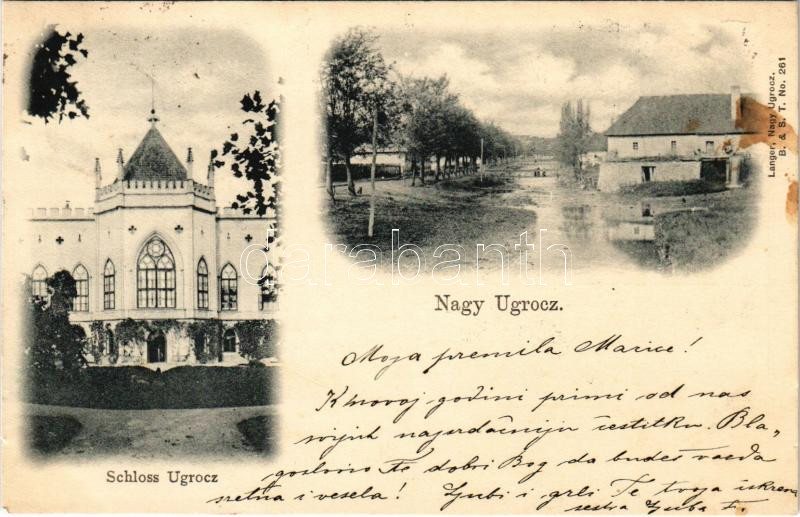 Langer, Nagy Ugrocz.
B. & S. T. No. 261
darabanth.com
Nagy Ugrocz.
Schloss Ugrocz
Moja premila Marice!
K novoj godini primi od nas
svijuh najsrdačniju čestitku. Bla„
goslovio Te dobri Bog da budeš vazda
sretna i vesela! Ljubi i grli Te tvoja iskrena
sestra Ljuba F.